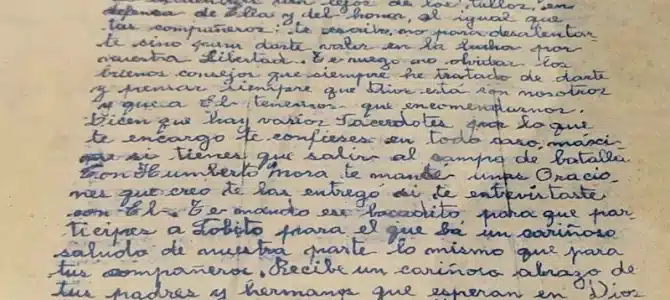 encuentras tan lejos de los tuyos, en
defensa de Ella y del honor, al igual que
tus compañeros; te escribo, no para desalentar-
te sino para darte valor en la lucha por
nuestra Libertad. Te ruego no olvidar los
buenos consejos que siempre he tratado de darte
y pensar siempre que Dios está con nosotros
y que a El tenemos que encomendarnos.
Dicen que hay varios Sacerdotes por lo que
te encargo te confieses en todo caso, máxi-
me si tienes que salir al campo de batalla.
Con Humberto Mora te mandé unas Oracio-
nes que creo te las entregó si te entrevistaste
con El. Te mando ese bocadito, para que par-
ticipes a Lobito para el que bá un cariñoso
saludo de nuestra parte lo mismo que para
tus compañeros. Recibe un cariñoso abrazo de
tus padres y hermanos que esperan en Dios